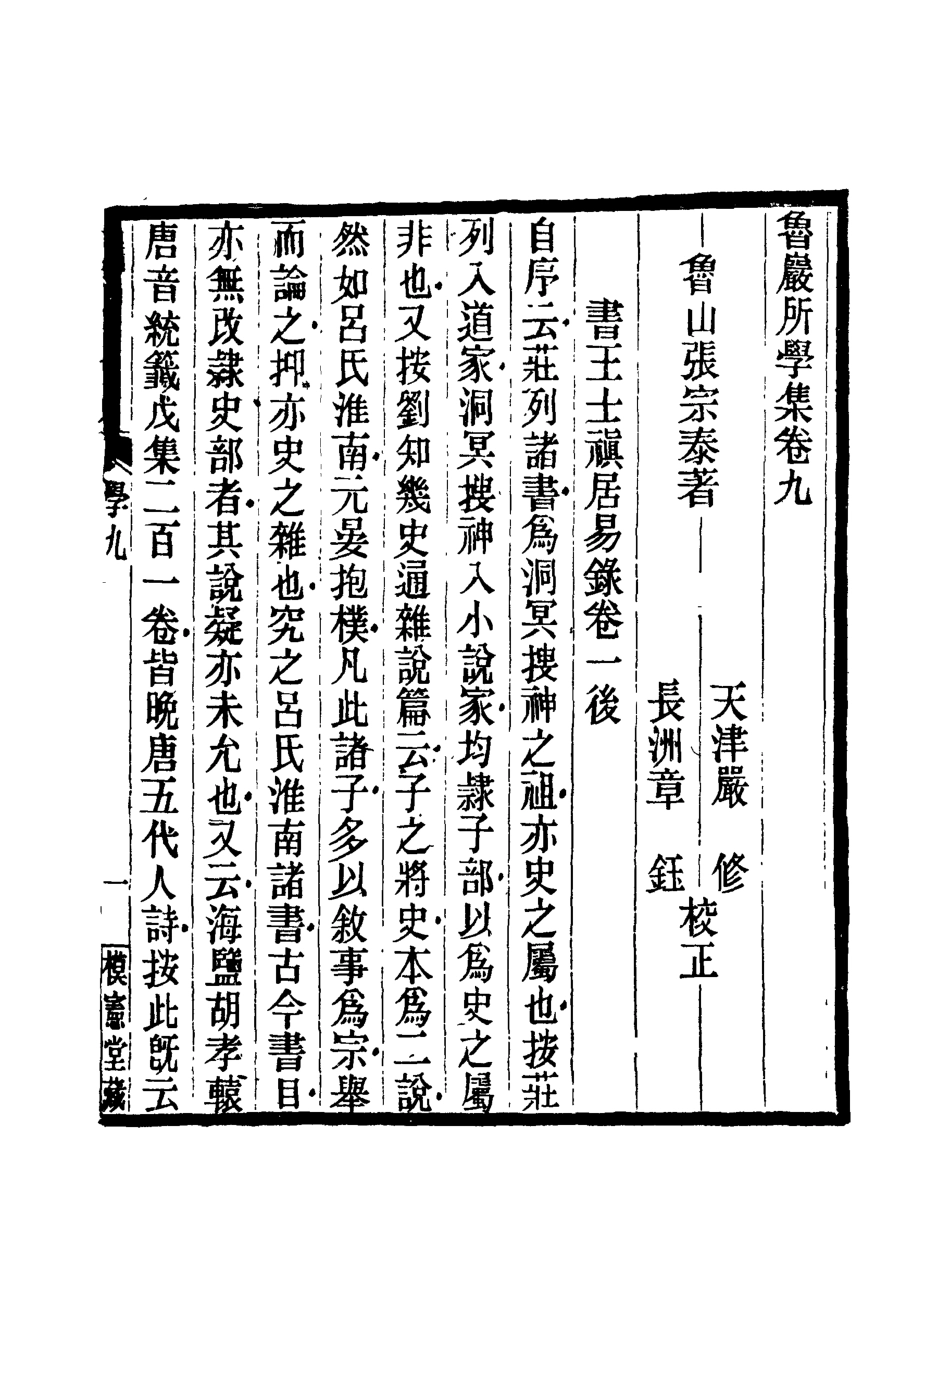 魯巖所學集卷九
魯山張宗泰著
天津嚴　修
長洲章　鈺
校正
書王士禛居易錄卷一後
自序云莊列諸書爲洞冥搜神之祖亦史之屬也按莊
列入道家洞冥搜神入小說家均隸子部以爲史之屬
非也又按劉知幾史通雜說篇云子之將史本爲二說
然如呂氏淮南元晏抱樸凡此諸子多以敘事爲宗舉
而論之抑亦史之雜也究之呂氏淮南諸書古今書目
亦無改隸史部者其說疑亦未允也又云海鹽胡孝轅
唐音統籤戊集二百一卷皆晚唐五代人詩按此旣云
學九
一
模憲堂藏